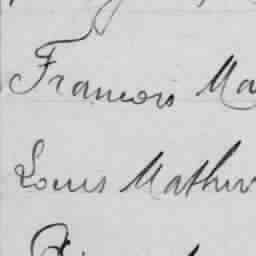 Francois Ma
Louis Mathur